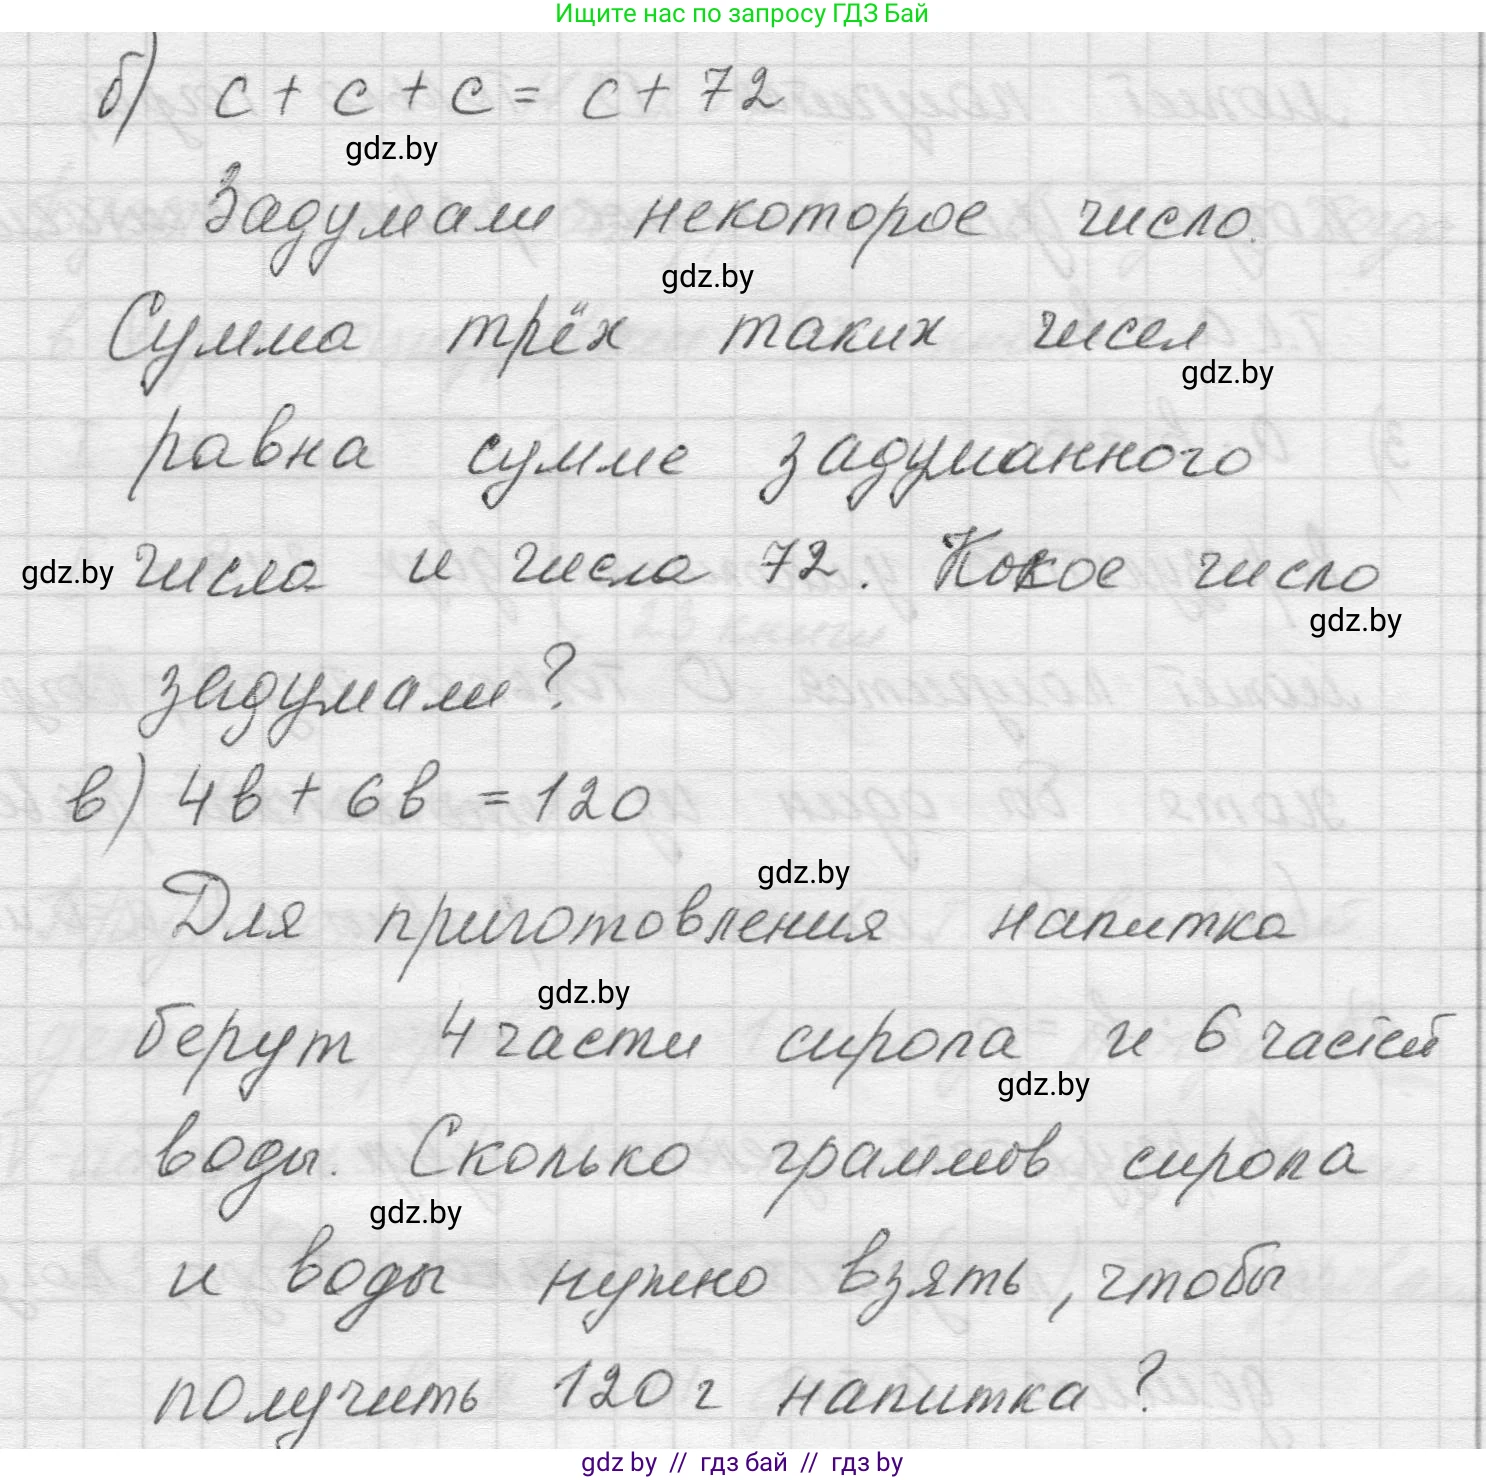 Ищите нас по запросу ГДЗ Бай
б) c + c + c = c + 72
gdz.by
Задумали некоторое число.
gdz.by
Сумма трёх таких чисел
gdz.by
равна сумме задуманного
gdz.by числа и числа 72. Какое число
gdz.by
задумали?
в) 4в + 6в = 120
gdz.by
Для приготовления напитка
gdz.by
берут 4 части сиропа и 6 частей
gdz.by
воды. Сколько граммов сиропа
gdz.by
и воды нужно взять, чтобы
получить 120 г напитка?
gdz.by // гдз бай // гдз by